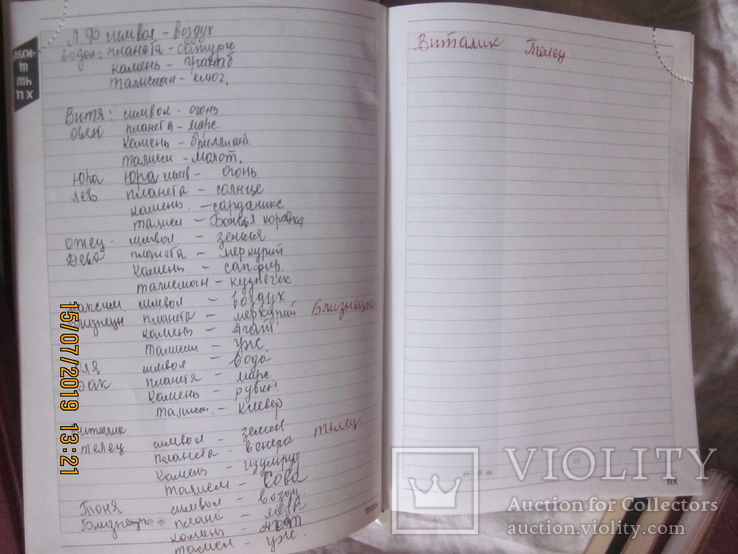 Л.Ф символ - воздух
водол: планета - сатурн
камень - гранат
талисман - ключ.
Витя: символ - огонь
овен планета - марс
камень - бриллиант
талисм - молот.
Юра Юра симв - огонь
лев планета - солнце
камень - сардоникс
талисм - Божья коровка
отец - символ - земля
Дева планета - меркурий
камень - сапфир.
талисман - кузнечик
максим. символ - воздух
Близнецы планета - меркурий Близнецы
камень - агат
талисм - уж.
символ - вода
рак планета - марс
камень - рубин
талисм. - клевер
Виталик символ - земля
телец планета - венера телец
камень - изумруд
талисм - Сова
Тоня символ - возду
Близнецы план -
камень - агат
талисм - уж.
Виталик Телец
15/07/2019 13:21
VIOLITY
Auction for Collectors
auction.violity.com